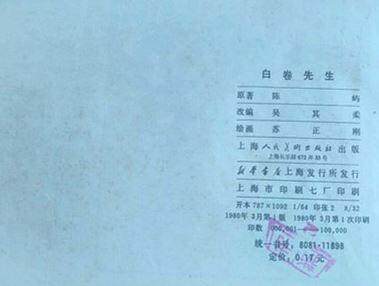 白卷先生
原著 陈 屿
改编 吴其柔
绘画 苏正刚
上海人民美术出版社出版
上海长乐路672弄33号
新华书店上海发行所发行
上海市印刷七厂印刷
开本 787×1092 1/64 印张 2 8/32
1980年3月第1版 1980年3月第1次印刷
印数 000,001——100,000
统一书号：8081·11898
定价：0.17元